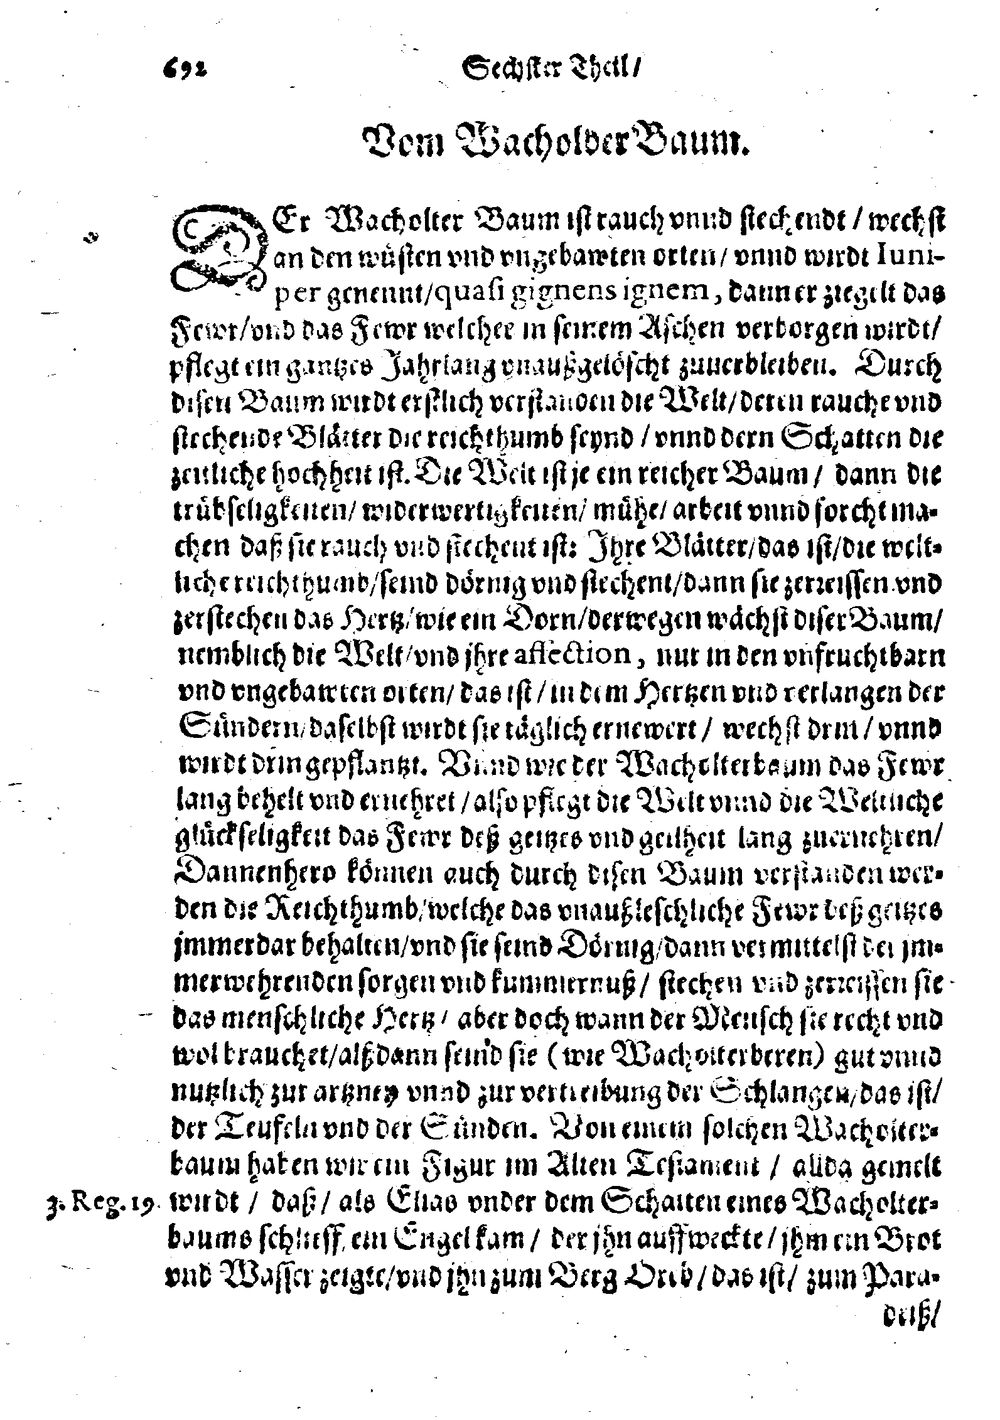 692 Sechster Theil/
Vom Wacholder Baum.
DEr Wacholter Baum ist rauch vnnd stechendt / wechst
an den wüsten vnd vngebawten orten / vnnd wirdt Iuni-
per genennt/quasi gignens ignem, dann er ziegelt das
Fewr/vnd das Fewr welches in seinem Aschen verborgen wirdt/
pflegt ein gantzes Jahrlang vnaußgelöscht zuuerbleiben. Durch
disen Baum wirdt erstlich verstanden die Welt/deren rauche vnd
stechende Blätter die reichthumb seynd / vnnd dern Schatten die
zeitliche hochheit ist. Die Welt ist je ein reicher Baum / dann die
trübseligkeiten/ widerwertigkeiten/ mühe/ arbeit vnnd forcht ma-
chen daß sie rauch vnd stechent ist: Jhre Blätter/das ist/die welt-
liche reichthumb/seind dörnig vnd stechent/dann sie zerreissen vnd
zerstechen das Hertz/wie ein Dorn/derwegen wächst diser Baum/
nemblich die Welt/vnd jhre affection, nur in den vnfruchtbarn
vnd vngebawten orten/ das ist / in dem Hertzen vnd verlangen der
Sündern/daselbst wirdt sie täglich ernewert / wechst drin / vnnd
wirdt drin gepflantzt. Vnnd wie der Wacholterbaum das Fewr
lang behelt vnd ernehret / also pflegt die Welt vnnd die Weltliche
glückseligkeit das Fewr deß geitzes vnd geilheit lang zuernehren/
Dannenhero können auch durch disen Baum verstanden wer-
den die Reichthumb/welche das vnaußleschliche Fewr deß geitzes
jmmerdar behalten/vnd sie seind Dörnig/dann vermittelst der jm-
merwehrenden sorgen vnd kummernuß / stechen vnd zerreissen sie
das menschliche Hertz / aber doch wann der Mensch sie recht vnd
wol brauchet/alßdann seind sie (wie Wacholterberen) gut vnnd
nutzlich zur artzney vnnd zur vertreibung der Schlangen/das ist/
der Teufeln vnd der Sünden. Von einem solchen Wacholter-
baum haben wir ein Figur im Alten Testament / allda gemelt
3. Reg. 19. wirdt / daß / als Elias vnder dem Schatten eines Wacholter-
baums schlieff, ein Engel kam / der jhn auffweckte / jhm ein Brot
vnd Wasser zeigte/vnd jhn zum Berg Oreb / das ist / zum Para-
deiß/